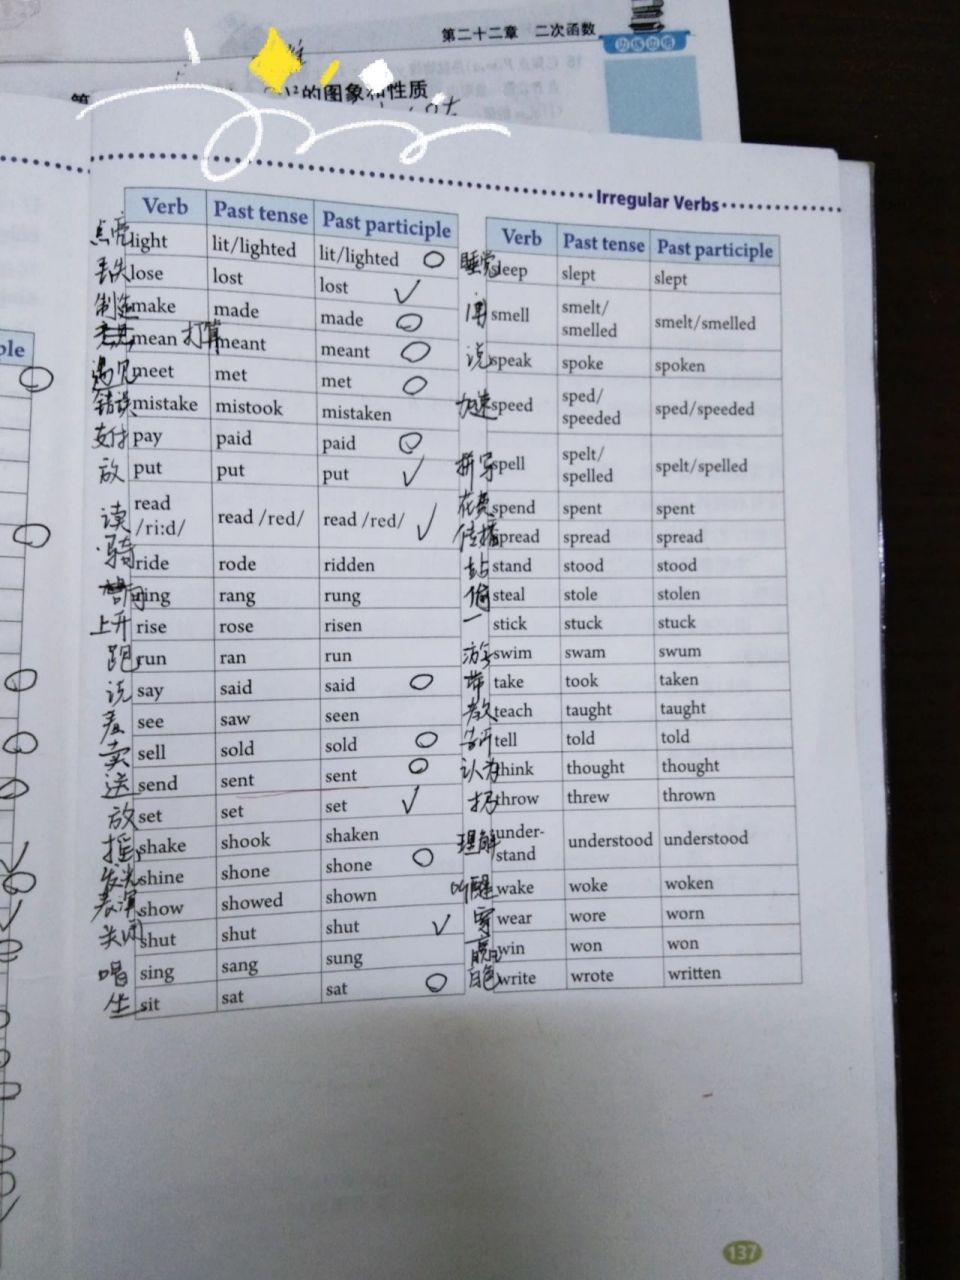 第二十二章 二次函数
边练边悟
的图象和性质
Irregular Verbs
Verb Past tense Past participle
点亮 light lit/lighted lit/lighted
丢失 lose lost lost
制造 make made made
mean 打算 meant meant
遇见 meet met met
错误 mistake mistook mistaken
支付 pay paid paid
放 put put put
读 read /ri:d/ read /red/ read /red/
骑 ride rode ridden
ring rang rung
上升 rise rose risen
跑 run ran run
说 say said said
see saw seen
卖 sell sold sold
送 send sent sent
放 set set set
摇 shake shook shaken
发光 shine shone shone
表演 show showed shown
关闭 shut shut shut
唱 sing sang sung
坐 sit sat sat
Verb Past tense Past participle
睡觉 sleep slept slept
smell smelt/ smelled smelt/smelled
说 speak spoke spoken
加速 speed sped/ speeded sped/speeded
拼写 spell spelt/ spelled spelt/spelled
花费 spend spent spent
传播 spread spread spread
站 stand stood stood
偷 steal stole stolen
stick stuck stuck
游 swim swam swum
带 take took taken
教 teach taught taught
告诉 tell told told
认为 think thought thought
扔 throw threw thrown
理解 under-stand understood understood
叫醒 wake woke woken
穿 wear wore worn
赢 win won won
write wrote written
137